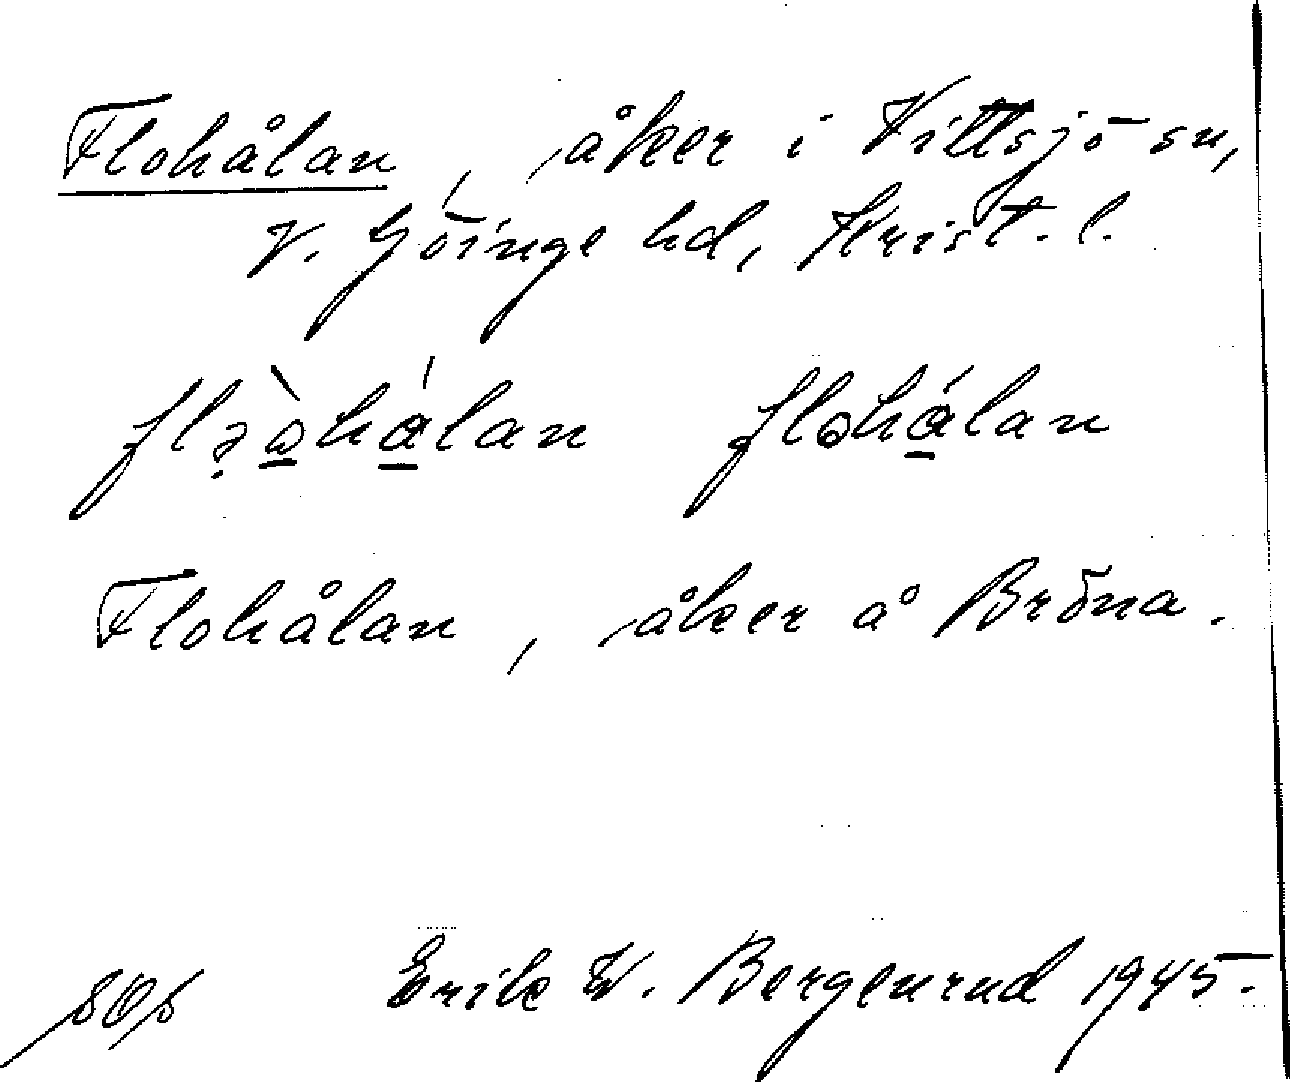 Flohålan, åker i Vittsjö sn,
V. Göinge hd, Krist. l.
flohålan
Flohålan, åker å Bröna.
Erik W. Bergenrud 1945.